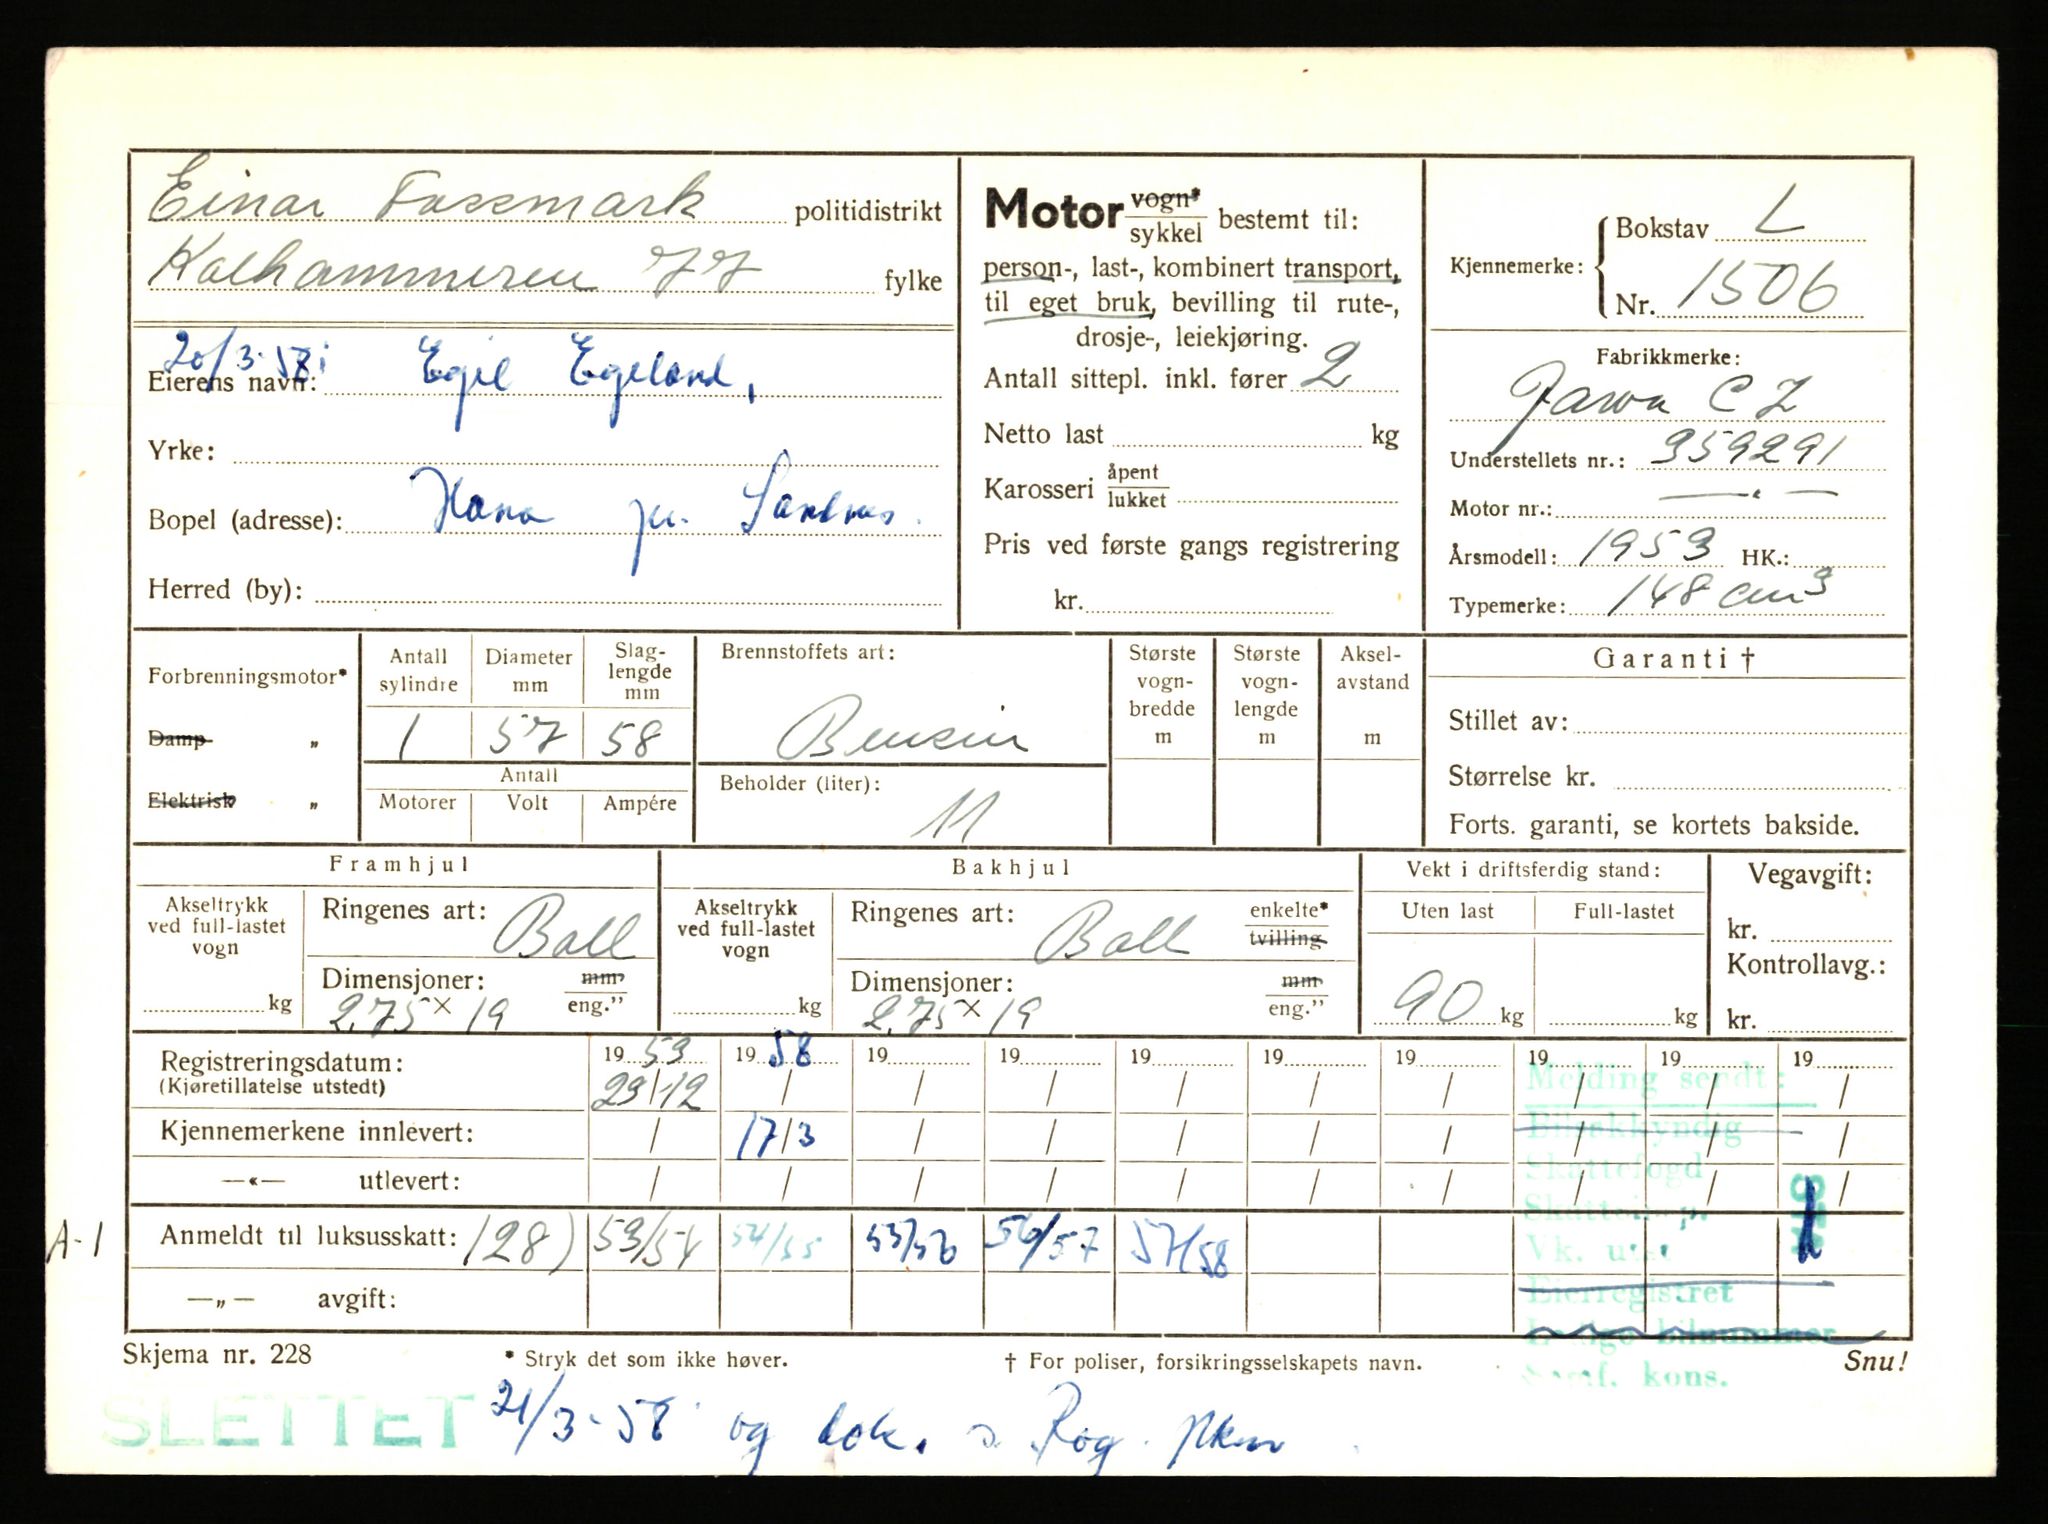 Einar Fossmark politidistrikt
Kalhammeren 77 fylke
20/3-58:
Eierens navn: Egil Egeland,
Yrke:
Bopel (adresse): Hana pr. Sandnes.
Herred (by):
Motor vogn* sykkel bestemt til:
person-, last-, kombinert transport,
til eget bruk, bevilling til rute-,
drosje-, leiekjøring.
Antall sittepl. inkl. fører 2
Netto last kg
Karosseri åpent lukket
Pris ved første gangs registrering
kr.
Kjennemerke: Bokstav L
Nr. 1506
Fabrikkmerke:
Jawa CZ
Understellets nr.: 359291
Motor nr.: — " —
Årsmodell: 1953 HK.:
Typemerke: 148 cm3
Forbrenningsmotor*
Damp „
Elektrisk „
Antall sylindre 1
Diameter mm 57
Slag-lengde mm 58
Antall
Motorer Volt Ampére
Brennstoffets art:
Bensin
Beholder (liter):
11
Største vogn-bredde m
Største vogn-lengde m
Aksel-avstand m
Garanti †
Stillet av:
Størrelse kr.
Forts. garanti, se kortets bakside.
Framhjul
Akseltrykk ved full-lastet vogn
kg
Ringenes art: Ball
Dimensjoner: mm eng."
2.75 x 19
Bakhjul
Akseltrykk ved full-lastet vogn
kg
Ringenes art: Ball enkelte* tvilling
Dimensjoner: mm eng."
2.75 x 19
Vekt i driftsferdig stand:
Uten last Full-lastet
90 kg kg
Vegavgift:
kr.
Kontrollavg.:
kr.
Registreringsdatum: 19 53 19 58 19 19 19 19 19 19 19 19
(Kjøretillatelse utstedt) 29/12 / / / / / / / / /
Kjennemerkene innlevert: / 17/3 / / / / / / / /
—«— utlevert: / / / / / / / / / /
A-1 Anmeldt til luksusskatt: 128) 53/54 54/55 55/56 56/57 57/58
—„— avgift:
Melding sendt:
Bilsakkyndig
Skattefogd
Eierregistret
Ledige bilnummer
kons.
Skjema nr. 228 * Stryk det som ikke høver. † For poliser, forsikringsselskapets navn. Snu!
SLETTET 21/3-58 og Rog.